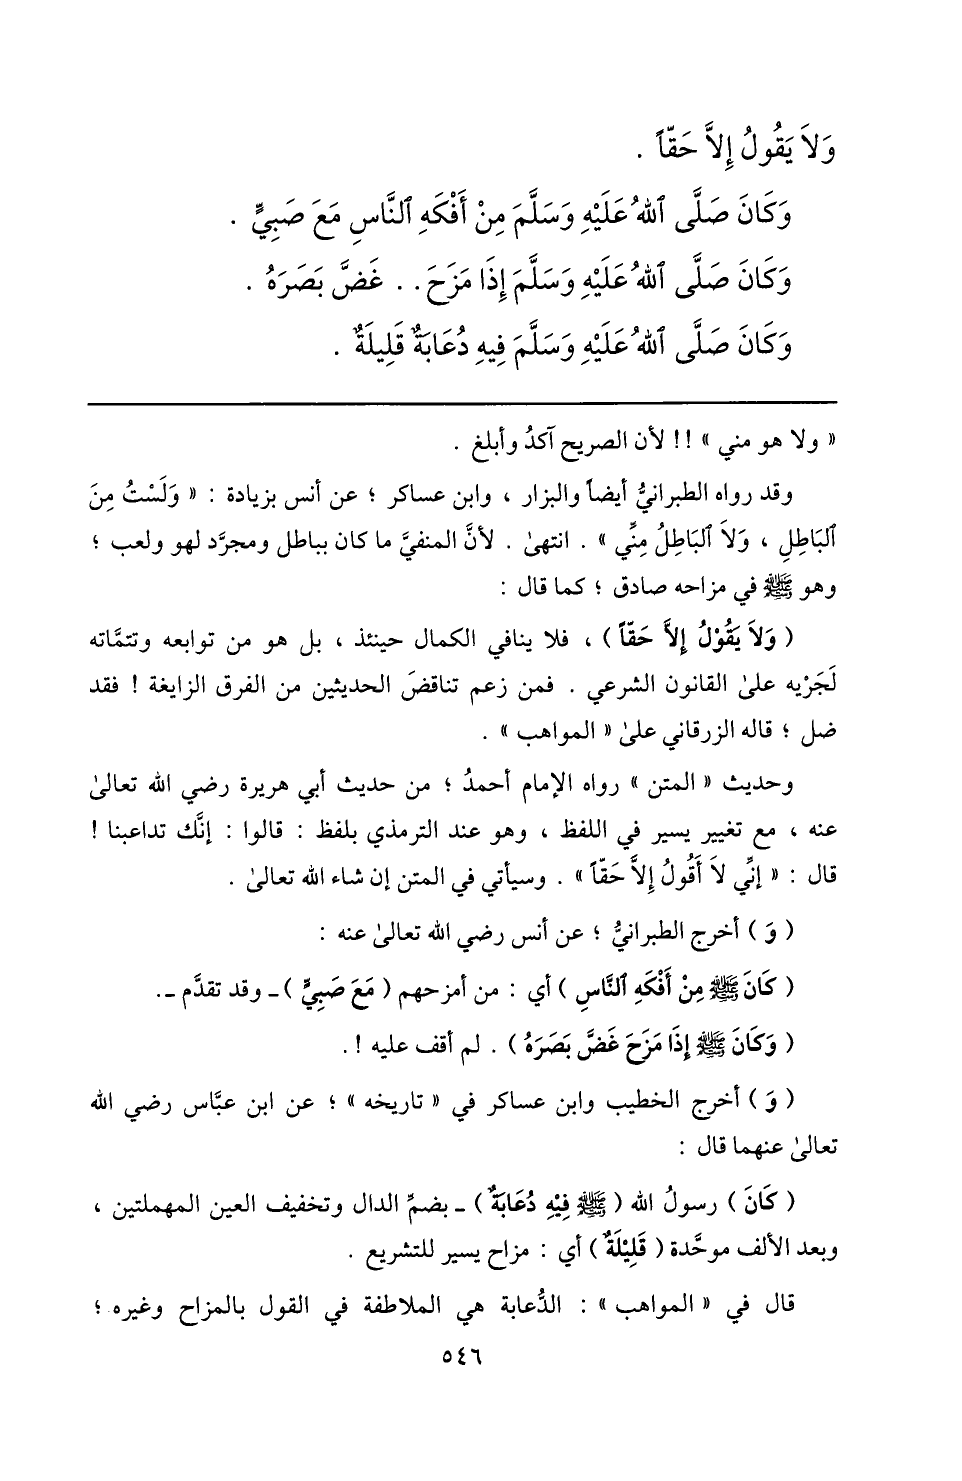 وَلاَ يَقُولُ إِلاَّ حَقّاً .
وَكَانَ صَلَّى ٱللهُ عَلَيْهِ وَسَلَّمَ مِنْ أَفْكَهِ ٱلنَّاسِ مَعَ صَبِيٍّ .
وَكَانَ صَلَّى ٱللهُ عَلَيْهِ وَسَلَّمَ إِذَا مَزَحَ . . غَضَّ بَصَرَهُ .
وَكَانَ صَلَّى ٱللهُ عَلَيْهِ وَسَلَّمَ فِيهِ دُعَابَةٌ قَلِيلَةٌ .
« ولا هو مني » !! لأن الصريح آكدُ وأبلغ .
وقد رواه الطبرانيُّ أيضاً والبزار ، وابن عساكر ؛ عن أنس بزيادة : « وَلَسْتُ مِنَ
ٱلبَاطِلِ ، وَلاَ ٱلبَاطِلُ مِنِّي » . انتهىٰ . لأنَّ المنفيَّ ما كان بباطل ومجرَّد لهو ولعب ؛
وهو ﷺ في مزاحه صادق ؛ كما قال :
( وَلاَ يَقُوْلُ إِلاَّ حَقّاً ) ، فلا ينافي الكمال حينئذ ، بل هو من توابعه وتتمَّاته
لَجَرْيه علىٰ القانون الشرعي . فمن زعم تناقضَ الحديثين من الفرق الزايغة ! فقد
ضل ؛ قاله الزرقاني علىٰ « المواهب » .
وحديث « المتن » رواه الإمام أحمدُ ؛ من حديث أبي هريرة رضي الله تعالىٰ
عنه ، مع تغيير يسير في اللفظ ، وهو عند الترمذي بلفظ : قالوا : إنَّك تداعبنا !
قال : « إنِّي لاَ أَقُولُ إِلاَّ حَقّاً » . وسيأتي في المتن إن شاء الله تعالىٰ .
( وَ ) أخرج الطبرانيُّ ؛ عن أنس رضي الله تعالىٰ عنه :
( كَانَ ﷺ مِنْ أَفْكَهِ ٱلنَّاسِ ) أي : من أمزحهم ( مَعَ صَبِيٍّ ) ـ وقد تقدَّم ـ.
( وَكَانَ ﷺ إِذَا مَزَحَ غَضَّ بَصَرَهُ ) . لم أقف عليه ! .
( وَ ) أخرج الخطيب وابن عساكر في « تاريخه » ؛ عن ابن عبَّاس رضي الله
تعالىٰ عنهما قال :
( كَانَ ) رسولُ الله ( ﷺ فِيْهِ دُعَابَةٌ ) ـ بضمِّ الدال وتخفيف العين المهملتين ،
وبعد الألف موحَّدة ( قَلِيْلَةٌ ) أي : مزاح يسير للتشريع .
قال في « المواهب » : الدُّعابة هي الملاطفة في القول بالمزاح وغيره ؛
٥٤٦